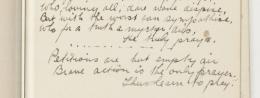 who, loving all, dare none despise,
But with the worst can sympathise,
who for a truth a martyr dies,
He truly prays.
. . . . . . . . . . . .
Petitions are but empty air
Brave action is the only prayer.
Thus learn to pray.